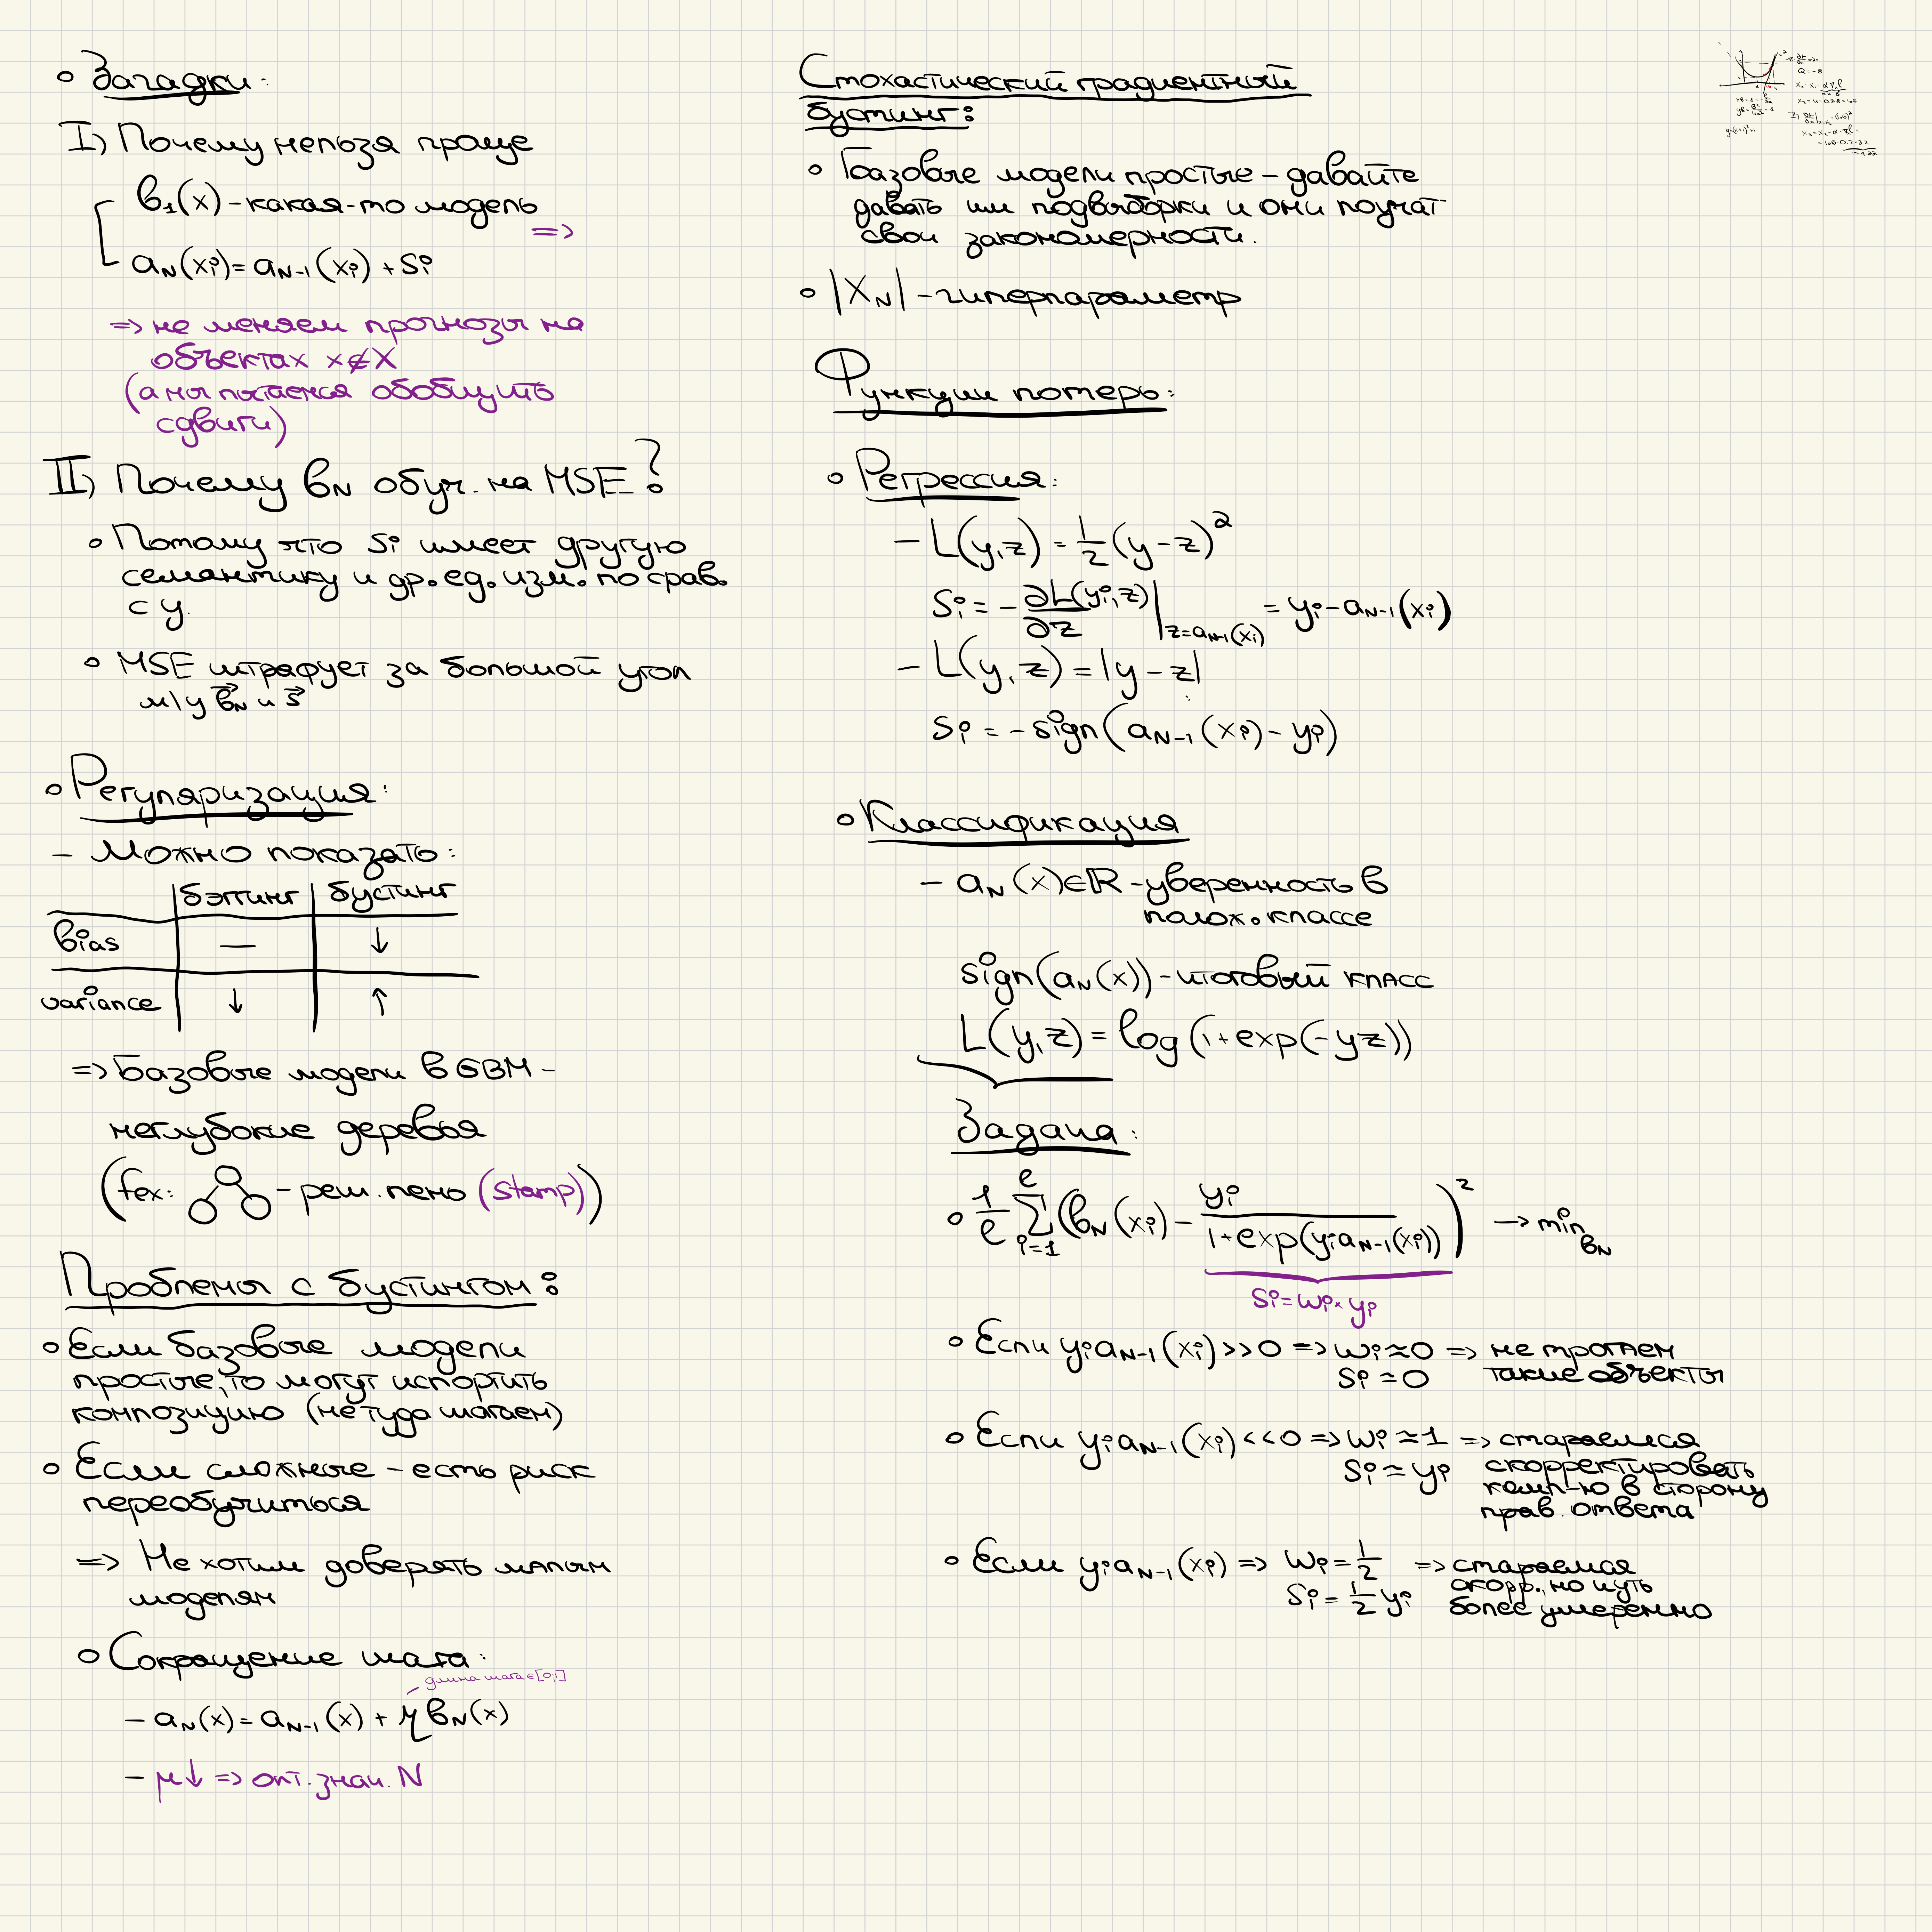 Загадки:
I) Почему нельзя проще
b₁(x) – какая-то модель
=>
a_N(x_i) = a_{N-1}(x_i) + s_i
=> не меняем прогнозы на
объектах x∉X
(а мы пытаемся обобщить
сдвиги)
II) Почему b_N обуч. на MSE?
Потому что s_i имеет другую
семантику и др. ед. изм. по срав.
с y.
MSE штрафует за большой угол
м/у b_N и s
Регуляризация:
– Можно показать:
бэггинг бустинг
bias — ↓
variance ↓ ↑
=> Базовые модели в GBM –
неглубокие деревья
(fex: – реш. пень (stamp))
Проблемы с бустингом:
Если базовые модели
простые, то могут испортить
композицию (не туда шагаем)
Если сложные – есть риск
переобучиться
=> Не хотим доверять малым
моделям
Сокращение шага:
длина шага ∈ [0;1]
– a_N(x) = a_{N-1}(x) + η b_N(x)
– μ↓ => опт. знач. N
Стохастический градиентный
бустинг:
Базовые модели простые – давайте
давать им подвыборки и они поучат
свои закономерности.
|X_N| – гиперпараметр
Функции потерь:
Регрессия:
– L(y,z) = 1/2 (y-z)²
s_i = – ∂L(y_i,z)/∂z |_{z=a_{N-1}(x_i)} = y_i – a_{N-1}(x_i)
– L(y,z) = |y – z|
s_i = – sign(a_{N-1}(x_i) – y_i)
Классификация
– a_N(x)∈ℝ – уверенность в
полож. классе
sign(a_N(x)) – итоговый класс
L(y,z) = log(1+exp(-yz))
Задача:
1/ℓ ∑_{i=1}^{ℓ} (b_N(x_i) – y_i/(1+exp(y_i a_{N-1}(x_i))))² → min_{b_N}
s_i = w_i × y_i
Если y_i a_{N-1}(x_i) >> 0 => w_i ≈ 0 => не трогаем
s_i ≃ 0 такие объекты
Если y_i a_{N-1}(x_i) << 0 => w_i ≃ 1 => стараемся
s_i ≃ y_i скорректировать
комп-ю в сторону
прав. ответа
Если y_i a_{N-1}(x_i) => w_i = 1/2 => стараемся
скорр., но чуть
s_i = 1/2 y_i более умеренно